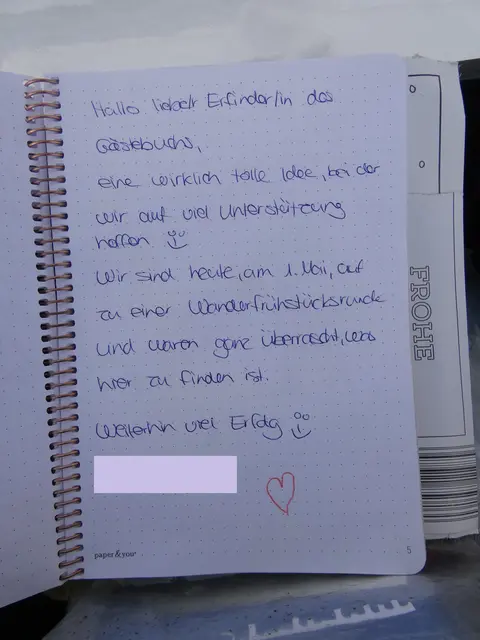 Hallo liebe/r Erfinder/in des
Gästebuchs,
eine wirklich tolle Idee, bei der
wir auf viel Unterstützung
hoffen
Wir sind heute, am 1. Mai, auf
zu einer Wanderfrühstücksrunde
und waren ganz überrascht, was
hier zu finden ist.
Weiterhin viel Erfolg
paper & you
5
FROHE